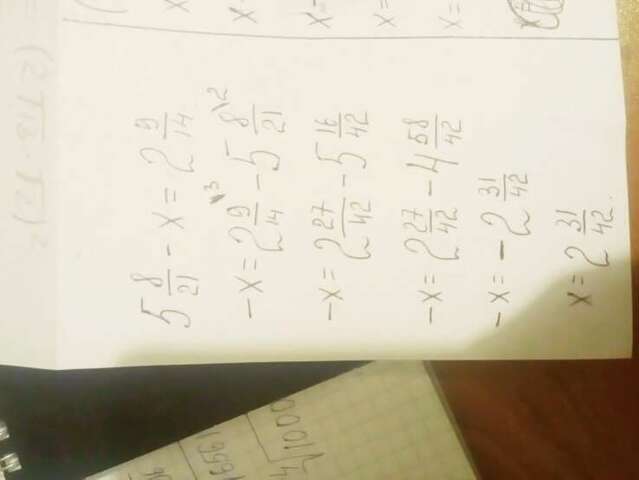 5 8/21 - x = 2 9/14
-x = 2 9/14 \3 - 5 8/21 \2
-x = 2 27/42 - 5 16/42
-x = 2 27/42 - 4 58/42
-x = -2 31/42
x = 2 31/42.
x
x-
x-
x=
x=
1656
4√1000